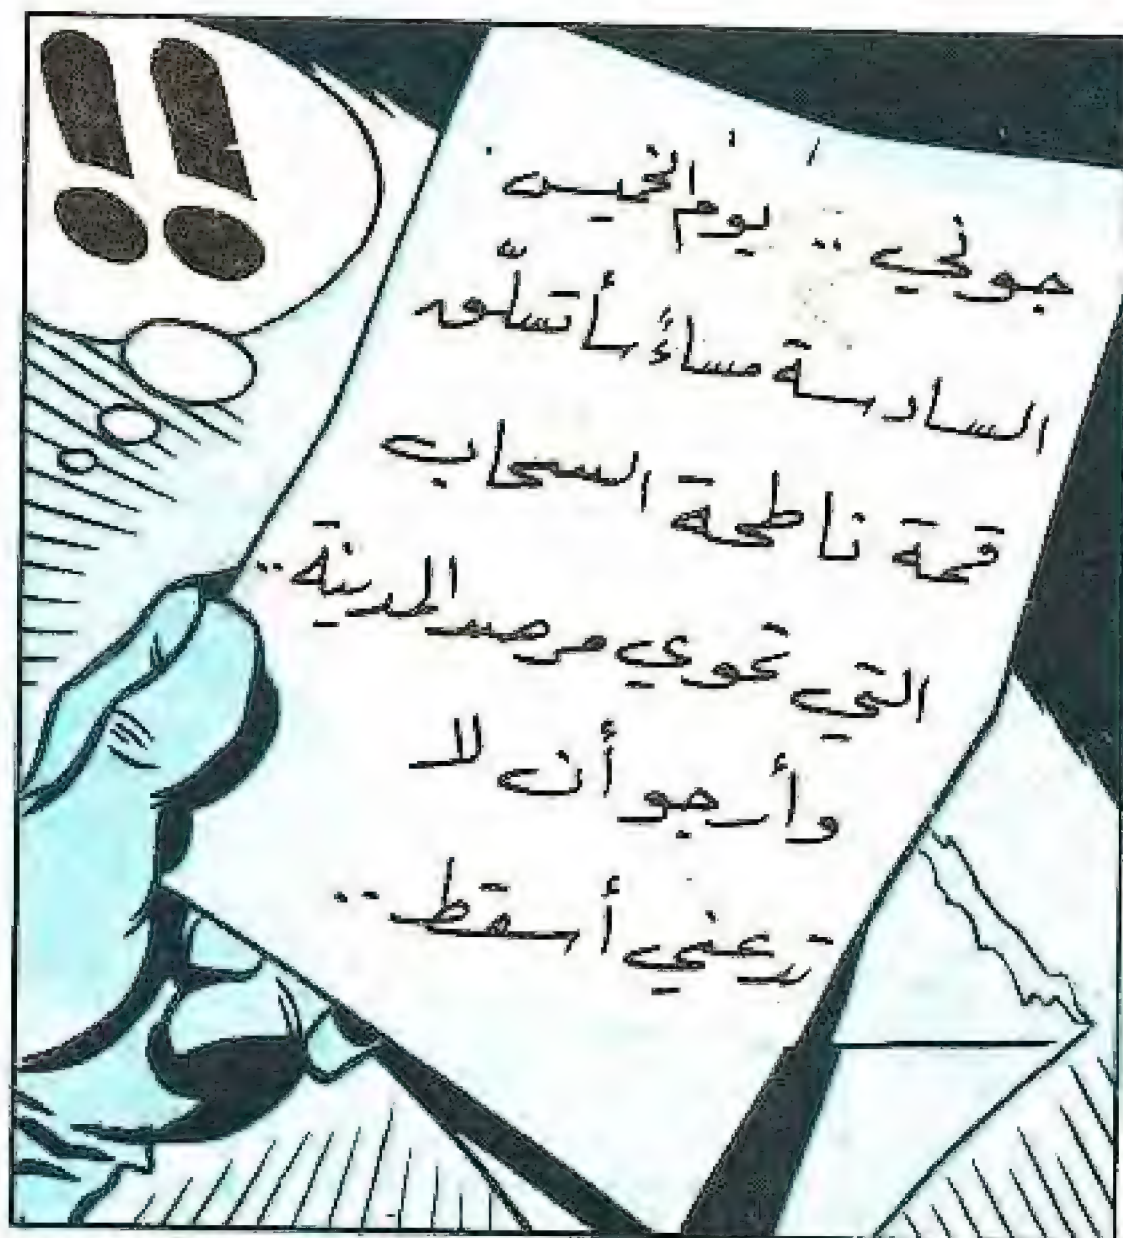 !!
جوني .. يوم الخميس
السادسة مساءً سأتسلّق
قمة ناطحة السحاب
التي تحوي مرصد المدينة ..
وأرجو أن لا
تدعني أسقط ..